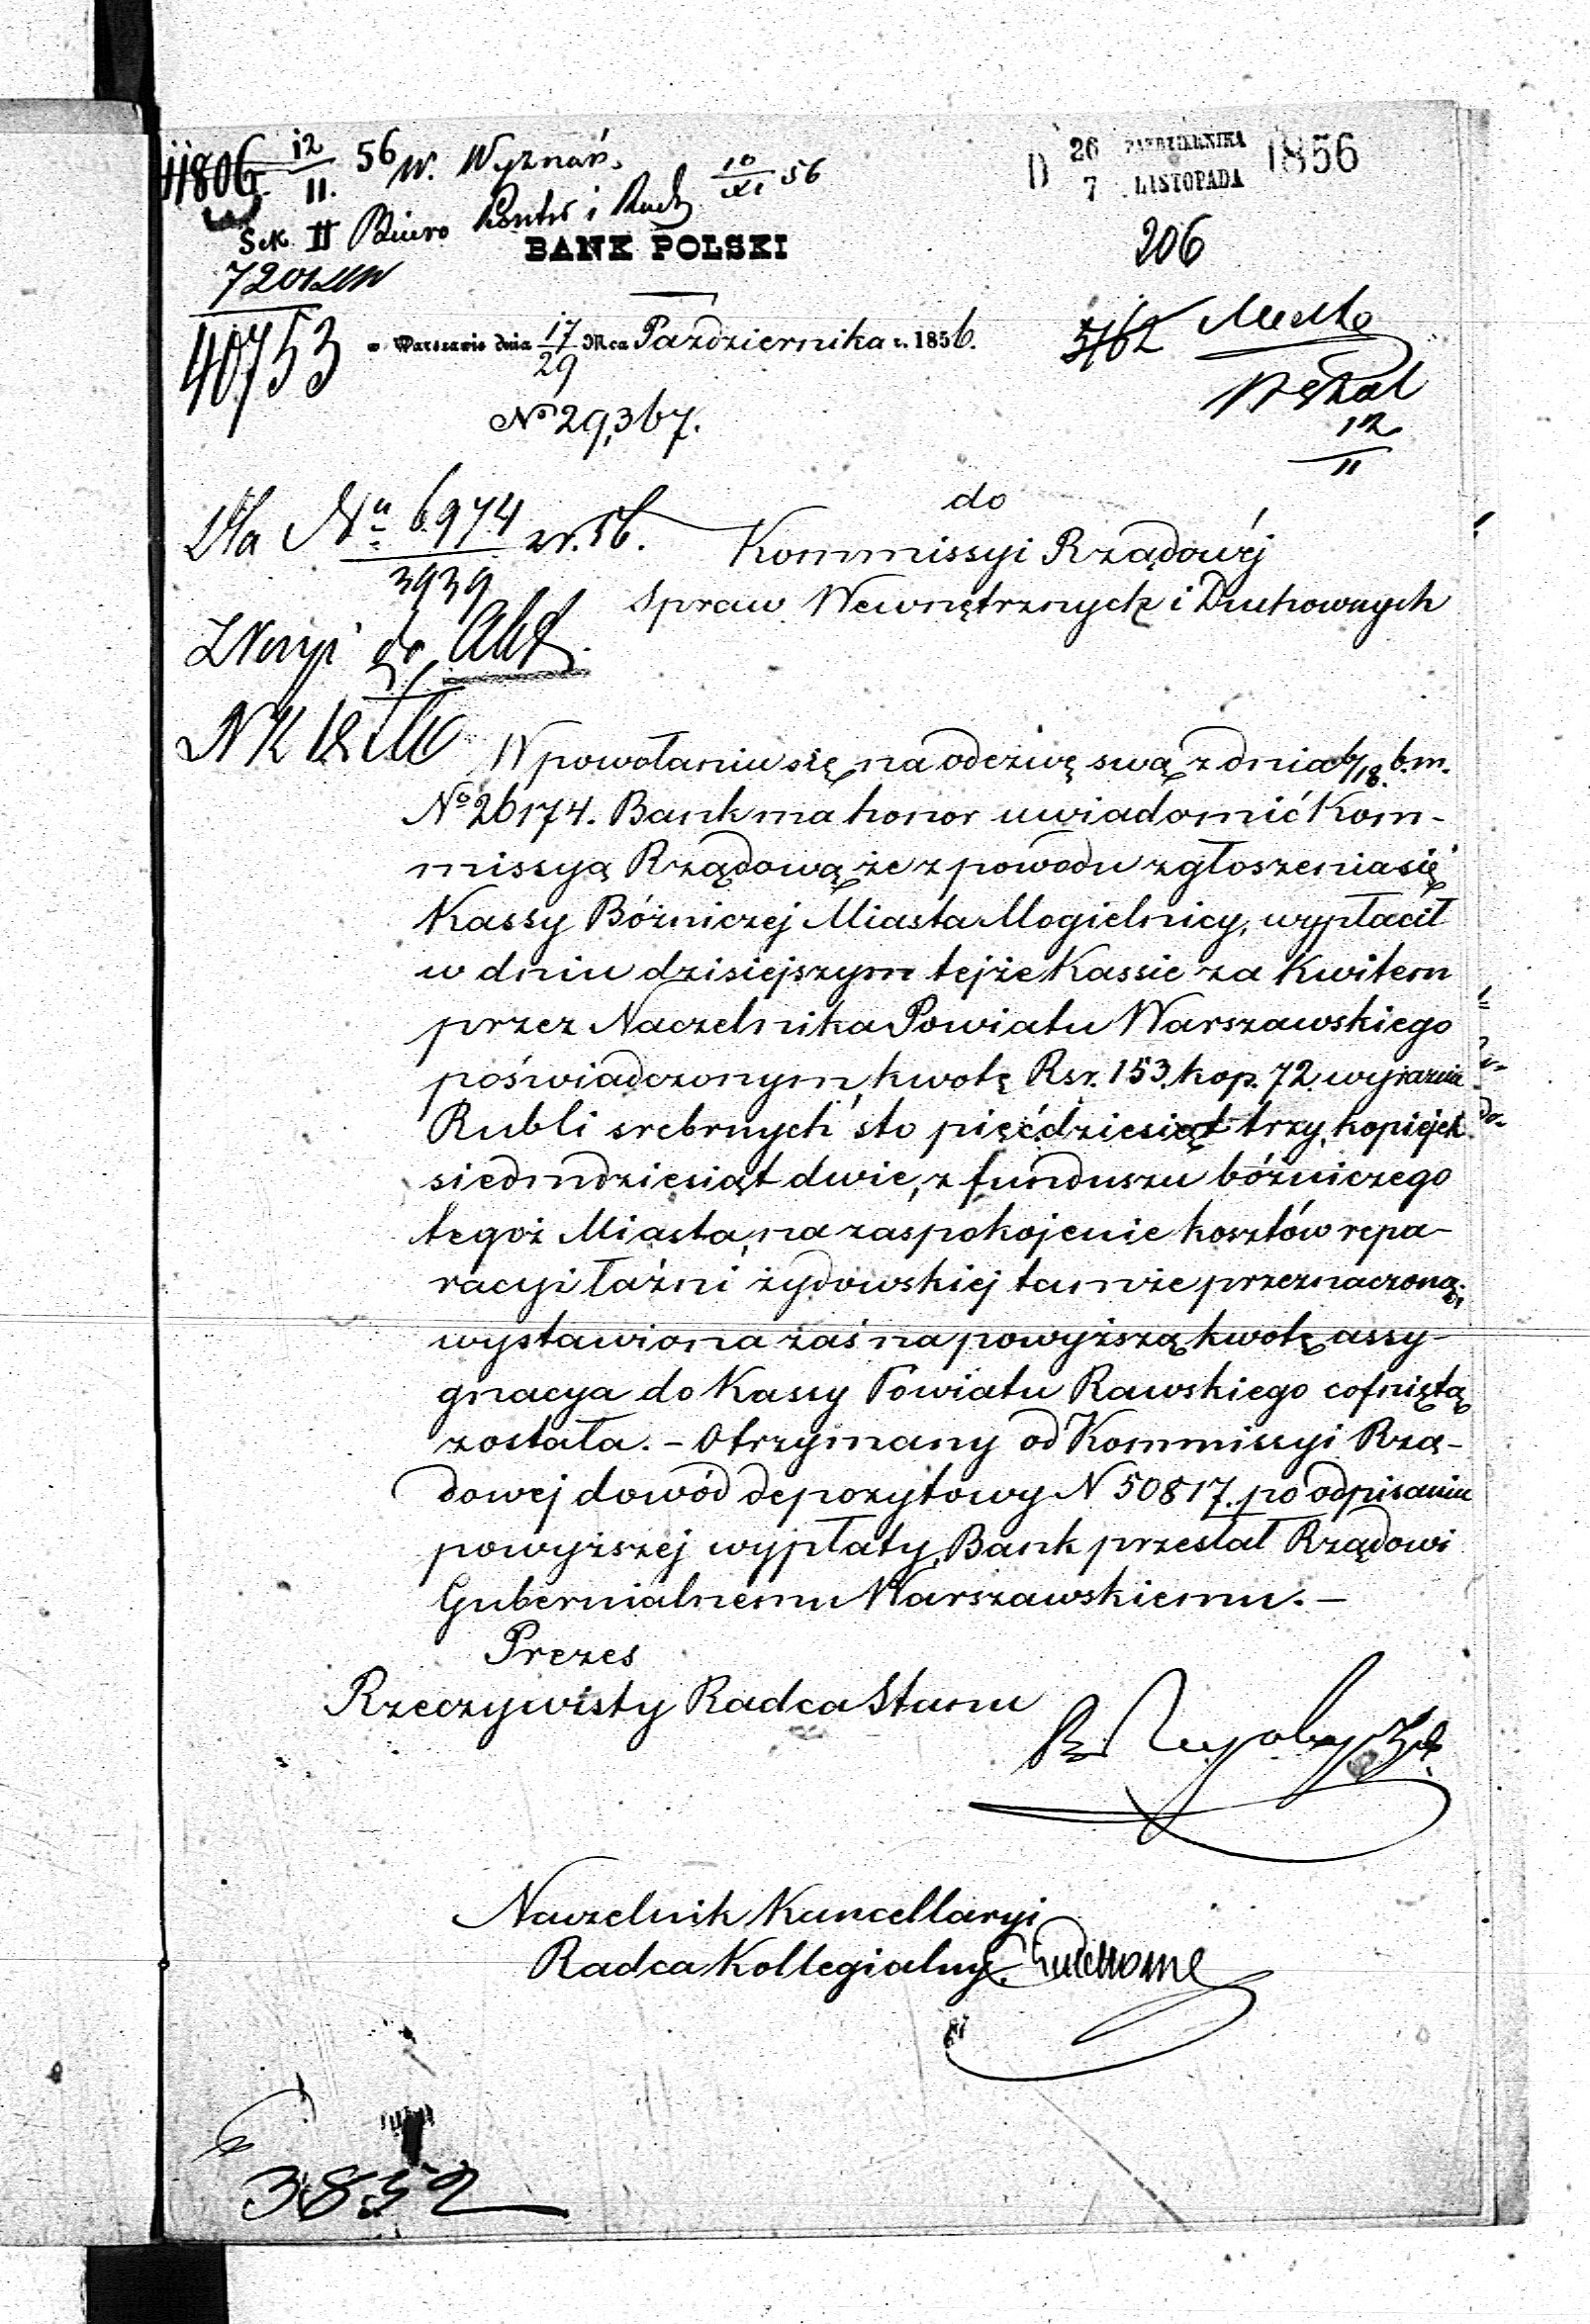 11806 12/11 56 W. Wyznań.
10/XI 56
D 26 PAZDZIERNIKA 1856
7 LISTOPADA
Sek II Biuro Kontr i Rach
BANK POLSKI
206
40753
w Warszawie dnia 17/29 Mca Października r. 1856.
5162
12/11
No 29,367.
do
Dla Na 6974/3939 zr. 56.
Kommissyi Rządowéj
Spraw Wewnętrznych i Duchownych
do Akt
W powołaniu się na odezwę swą z dnia 6/18. b.m.
No 26174. Bank ma honor uwiadomić Kom-
missyą Rządową że z powodu zgłoszenia się
Kassy Bóżniczej Miasta Mogielnicy, wypłacił
w dniu dzisiejszym tejże Kassie za kwitem
przez Naczelnika Powiatu Warszawskiego
poświadczonym, kwotę Rsr. 153. kop. 72. wyraznie
Rubli srebrnych sto pięćdziesiąt trzy, kopiejek
siedmdziesiąt dwie, z funduszu bóżniczego
tegoż Miasta, na zaspokojenie kosztów repa-
racyi łaźni żydowskiej tamże przeznaczoną;
wystawiona zaś na powyższą kwotę assy-
gnacya do Kassy Powiatu Rawskiego cofniętą
została. - Otrzymany od Kommissyi Rzą-
dowej dowód depozytowy N 50817. po odpisaniu
powyższej wypłaty, Bank przesłał Rządowi
Gubernialnemu Warszawskiemu. -
Prezes
Rzeczywisty Radca Stanu
Naczelnik Kancellaryi
Radca Kollegialny
3832